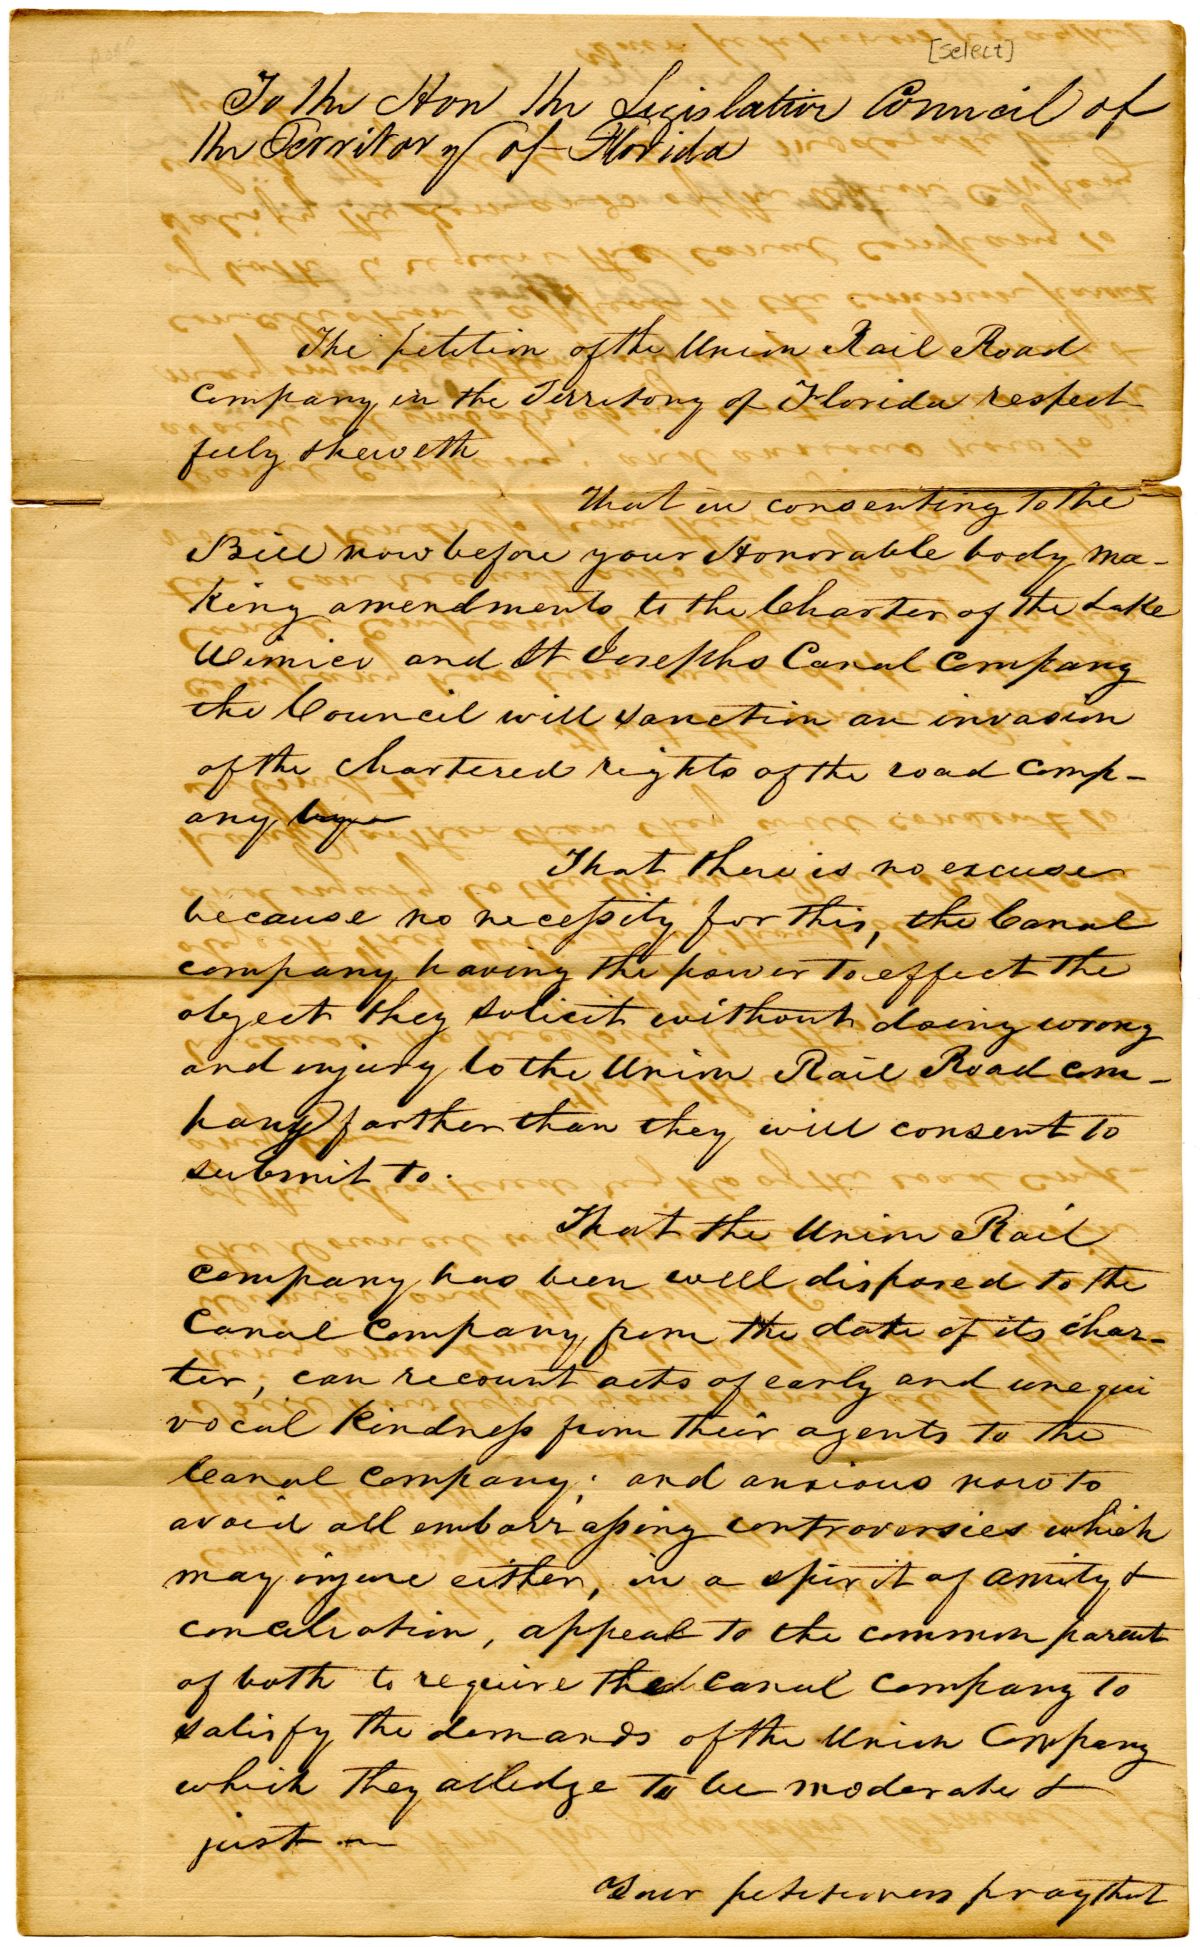 [select]
To the Hon the Legislative Council of
the Territory of Florida
The petition of the Union Rail Road
Company in the Territory of Florida respect
fully sheweth
That in consenting to the
Bill now before your Honorable body ma-
king amendments to the Charter of the Lake
Wimico and St Josephs Canal Company
the Council will sanction an invasion
of the chartered rights of the road Comp-
any by
That there is no excuse
because no necessity for this, the Canal
company having the power to effect the
object they solicit without doing wrong
and injury to the Union Rail Road com-
pany farther than they will consent to
submit to.
That the Union Rail
Company has been well disposed to the
Canal Company from the date of its char-
ter, can recount acts of early and unequi
vocal kindness from their agents to the
Canal Company; and anxious now to
avoid all embarrassing controversies which
may injure either, in a spirit of amity &
conciliation, appeal to the common parent
of both to require the Canal Company to
satisfy the demands of the Union Company
which they alledge to be moderate &
just —
Your petitioners pray that